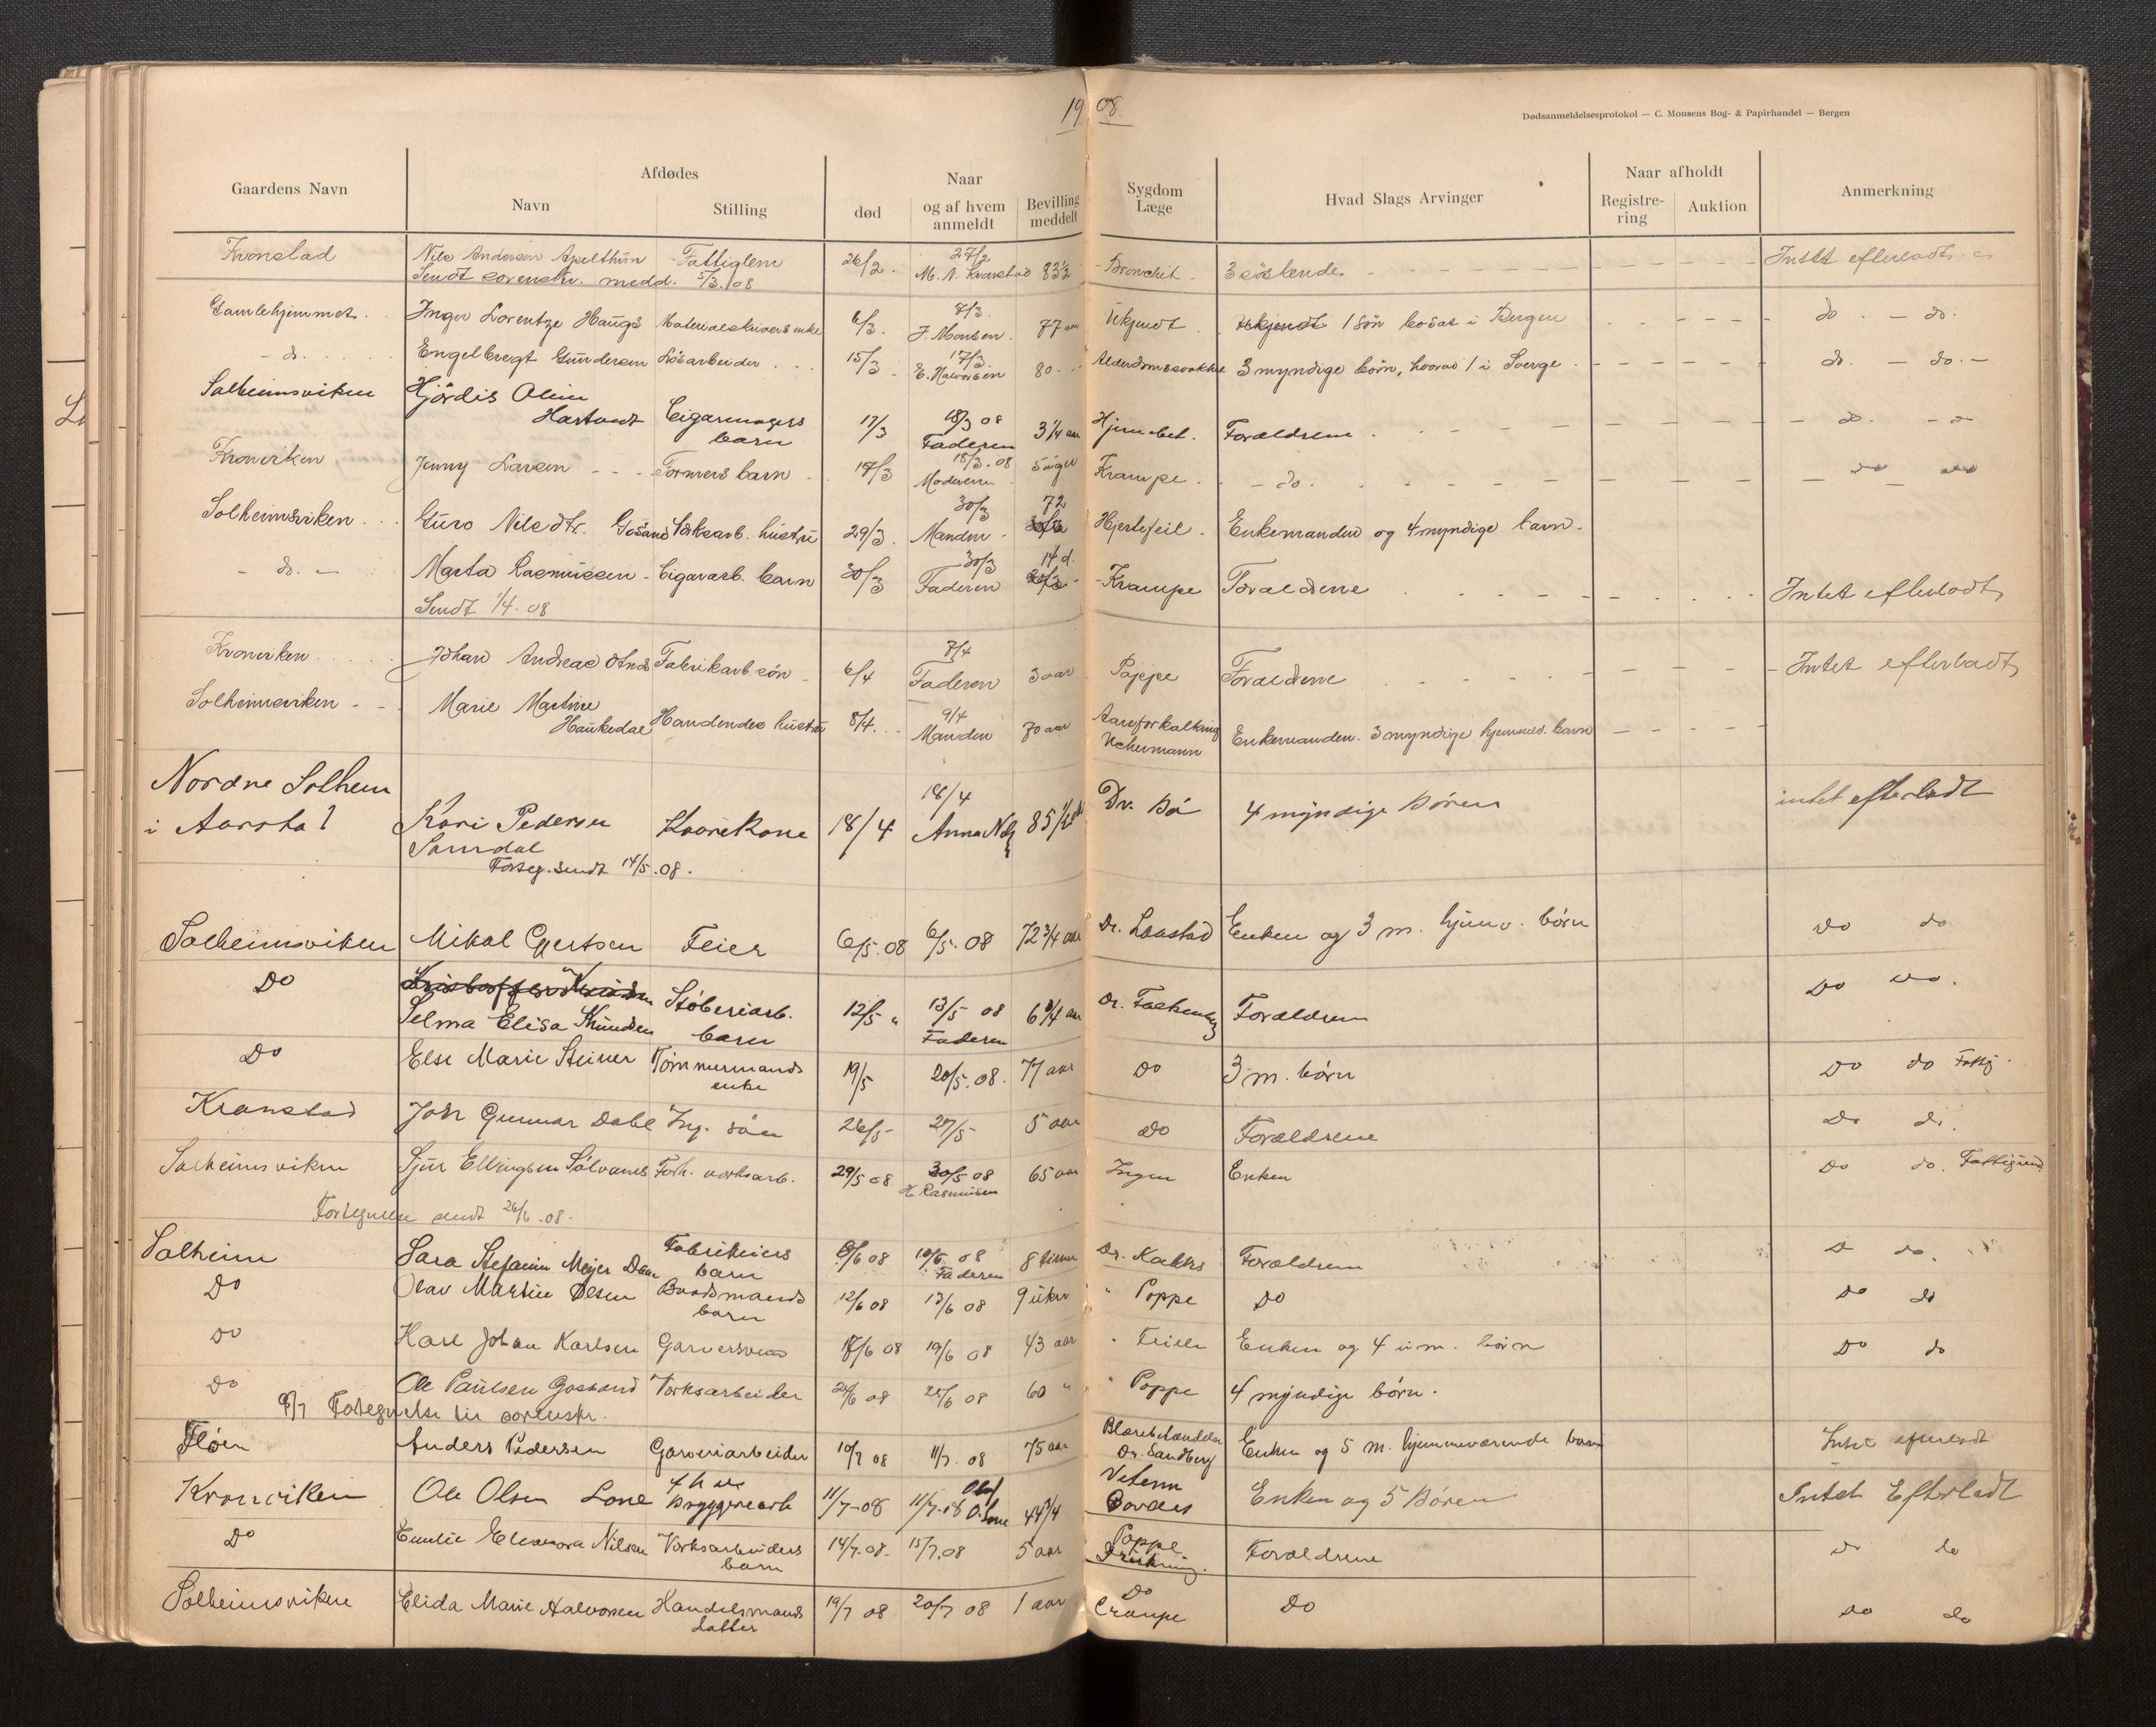 1908
Dødsanmeldelsesprotokol — C. Monsens Bog- & Papirhandel — Bergen
Gaardens Navn
Afdødes
Navn
Stilling
død
Naar
og af hvem
anmeldt
Bevilling
meddelt
Sygdom
Læge
Hvad Slags Arvinger
Naar afholdt
Registre-
ring
Auktion
Anmerkning
Kronstad Nils Andersen Apelthun Fattiglem 26/2. 27/2 M. N. Kronstad 83½ Bronchit 3 søskende Intet efterladt
Sendt sorenskr. medd. 5/3.08
Gamlehjemmet Inger Lorentze Haugs Materialskrivers enke 6/3. 7/3. J. Monsen. 77 aar Ukjendt Ukjendt 1 søn bosat i Bergen do. — do.
— d. Engelbregt Gundersen Løsarbeider 15/3 17/3. E. Halvorsen 80 Alderdomssvakhet 3 myndige børn, hvorav 1 i Sverge do. — do. —
Solheimsviken Hjørdis Oline
Hartvedt Cigarmagers
barn 17/3 18/3 08
Faderen 3 1/4 aar Hjernebet. Forældrene do. — do
Kronviken Jenny Larsen Formers barn 18/3.08
Moderen 5 uger Krampe — do.
Solheimsviken Guro Nilsdtr. Gosand Verksarb. hustru 29/3. 30/3 Manden 72 Hjertefeil. Enkemanden og 4 myndige barn.
— do. — Marta Rasmussen Cigararb. barn 30/3 30/3 Faderen 14 d. Krampe Forældrene Intet efterladt
Sendt 1/4.08
Kronviken Johan Andreas Fabrikarb. søn 6/4 7/4 Faderen 3 aar Poppe Forældrene Intet efterladt
Solheimsviken Marie Martine
Haukedal Handlendes hustru 8/4. 9/4 Manden 70 aar Aareforkalkning
Uchermann Enkemanden. 3 myndige hjemmev. barn
Nordre Solhem
i Aarstad Kari Pedersen
Samdal Kaarekone 18/4 18/4
Anna 85 1/2 Dr. Bø 4 myndige Børen intet efterladt
Forteg. sendt 14/5.08.
Solheimsviken Mikal Gjertsen Feier 6/5.08 6/5.08 72 3/4 aar Dr. Laastad Enken og 3 m. hjemv. børn Do do
Do Selma Elisa Knudsen Støberiarb.
barn 12/5 " 13/5 08
Faderen 6 3/4 aar Dr. Forældrene Do do.
Do Else Marie Steiner Tømmermands
enke 19/5 20/5.08. 77 aar Do 3 m. børn Do do Fattig.
Kronstad John Gunnar Dahl Ing. søn 26/5 27/5 5 aar Do Forældrene Do do.
Solheimsviken Sjur Ellingsen Solvanes Forh. verksarb. 29/5 08 30/5 08
H. Rasmussen 65 aar Ingen Enken Do do. Fattigund.
Fortegnelse sendt 26/6.08.
Solheim Sara Stefanie Meyer Fabrikeiers
barn 9/6 08 10/6 08
Faderen 8 timer Dr. Forældrene D do.
Do Olav Martin Olsen Baadsmands
barn 12/6 08 13/6 08 9 uker " Poppe Do Do do
Do Karl Johan Karlsen Garversvend 17/6 08 19/6 08 43 aar " Enken og 4 um. børn Do do
Do Ole Paulsen Gossand Verksarbeider 24/6 08 25/6 08 60 " " Poppe 4 myndige børn.
9/7 Fortegnelse til sorenskr.
Fløen Anders Pedersen Garveriarbeider 10/7 08 11/7. 08 75 aar Blærebetændelse
Dr. Sandberg Enken og 5 m. hjemmeværende barn Intet efterladt
Kronviken Ole Olsen Lone Bryggeriarb 11/7-08 11/7-08 O. Lone 44 3/4 Enken og 5 Børen Intet Efterladt
Do Emilie Eleonora Nilsen Verksarbeiders
barn 14/7.08. 15/7.08 5 aar Poppe Forældrene do do
Solheimsviken Elida Marie Halvorsen Handelsmands
datter 19/7 08 20/7 08 1 aar Do
Crampe Do Do do